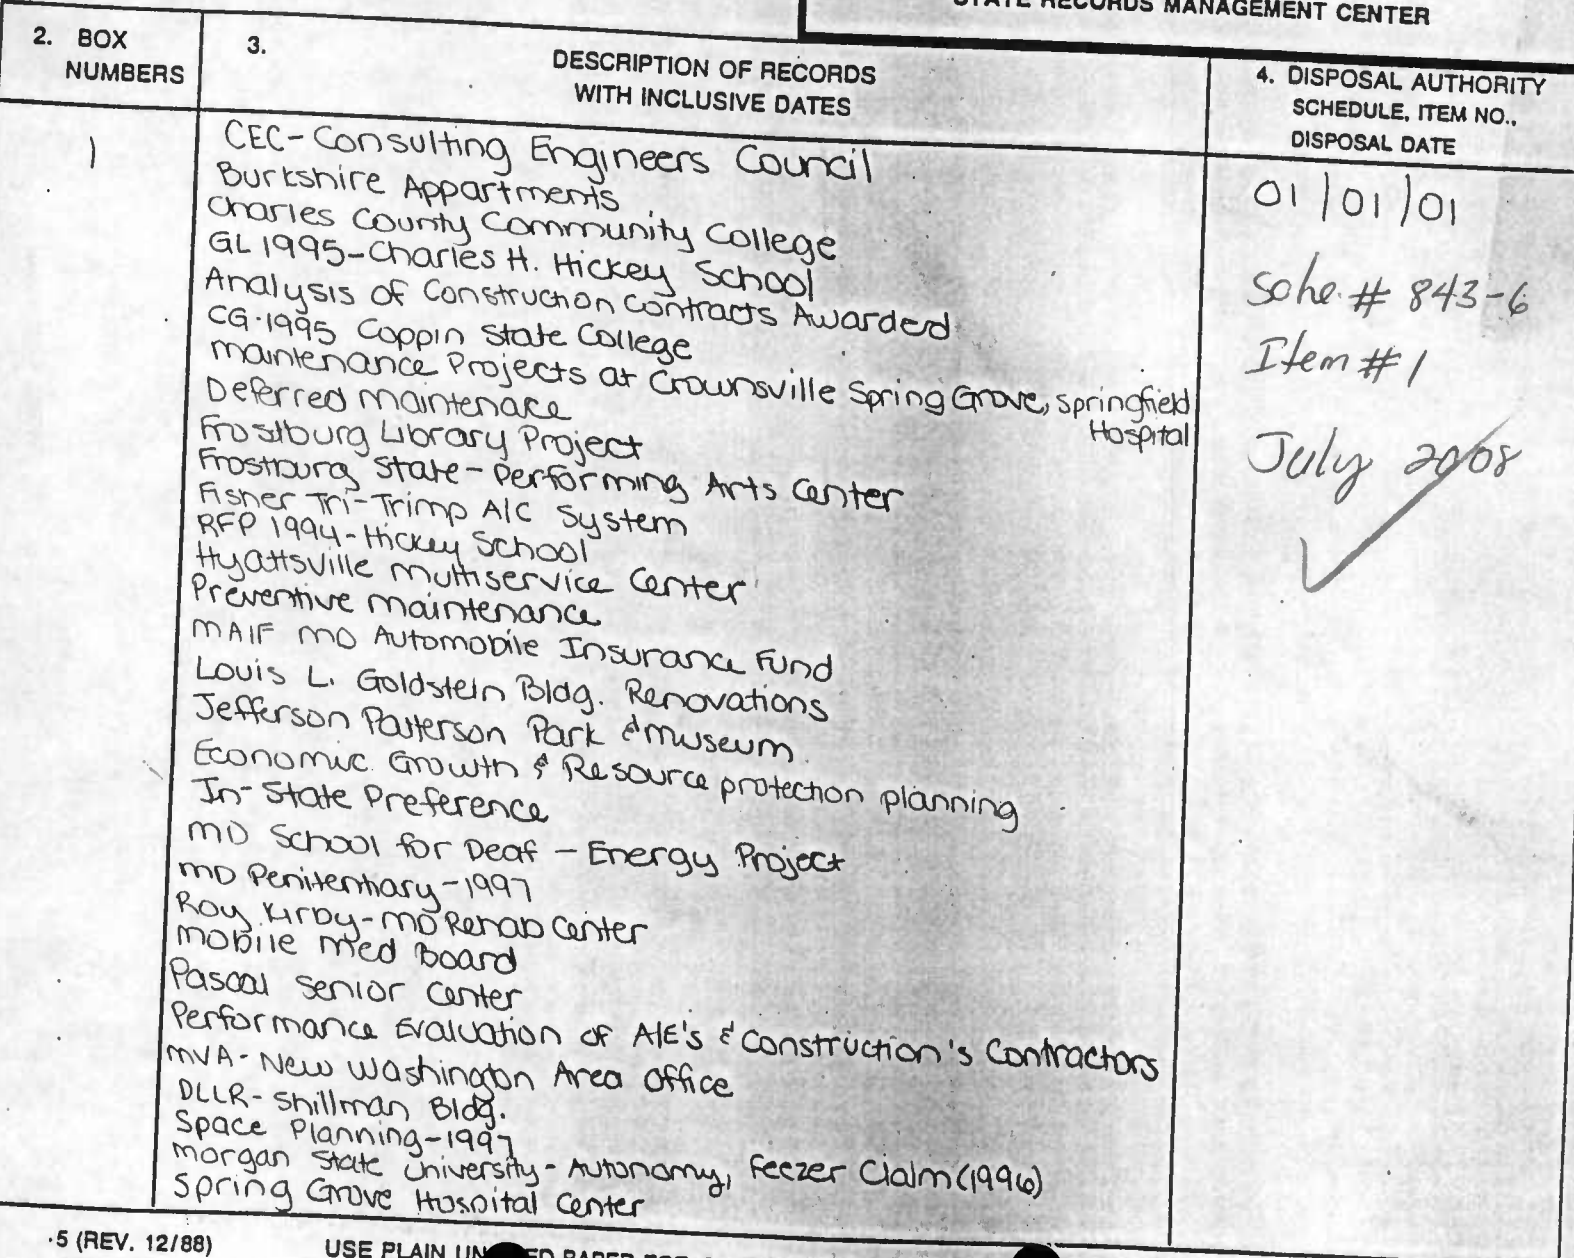 STATE RECORDS MANAGEMENT CENTER
2. BOX NUMBERS
3.
DESCRIPTION OF RECORDS
WITH INCLUSIVE DATES
4. DISPOSAL AUTHORITY
SCHEDULE, ITEM NO.,
DISPOSAL DATE
1
CEC-Consulting Engineers Council
Burkshire Appartments
Charles County Community College
GL 1995-Charles H. Hickey School
Analysis of Construction Contracts Awarded
CG-1995 Coppin State College
Maintenance Projects at Crownsville Spring Grove, Springfield
Hospital
Deferred Maintenace
Frostburg Library Project
Frostburg State-Performing Arts Center
Fisher Tri-Trimp A/C System
RFP 1994-Hickey School
Hyattsville Multiservice Center
Preventive Maintenance
MAIF MD Automobile Insurance Fund
Louis L. Goldstein Bldg. Renovations
Jefferson Patterson Park & Museum
Economic Growth & Resource protection planning
In-State Preference
MD School for Deaf - Energy Project
MD Penitentiary-1997
Roy Kirby-MD Rehab Center
Mobile Med Board
Pascal Senior Center
Performance Evaluation of A/E's & Construction's Contractors
MVA-New Washington Area Office
DLLR-Shillman Bldg.
Space Planning-1997
Morgan State University-Autonomy, Feezer Claim (1996)
Spring Grove Hospital Center
01/01/01
Sche. # 843-6
Item #1
July 2008
.5 (REV. 12/88)
USE PLAIN